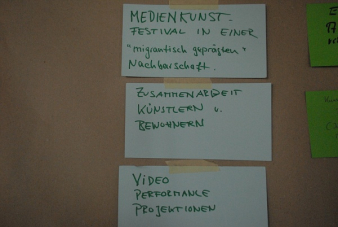 MEDIENKUNST-
FESTIVAL IN EINER
"migrantisch geprägten"
Nachbarschaft.
ZUSAMMENARBEIT
KÜNSTLERN u.
BEWOHNERN
VIDEO
PERFORMANCE
PROJEKTIONEN